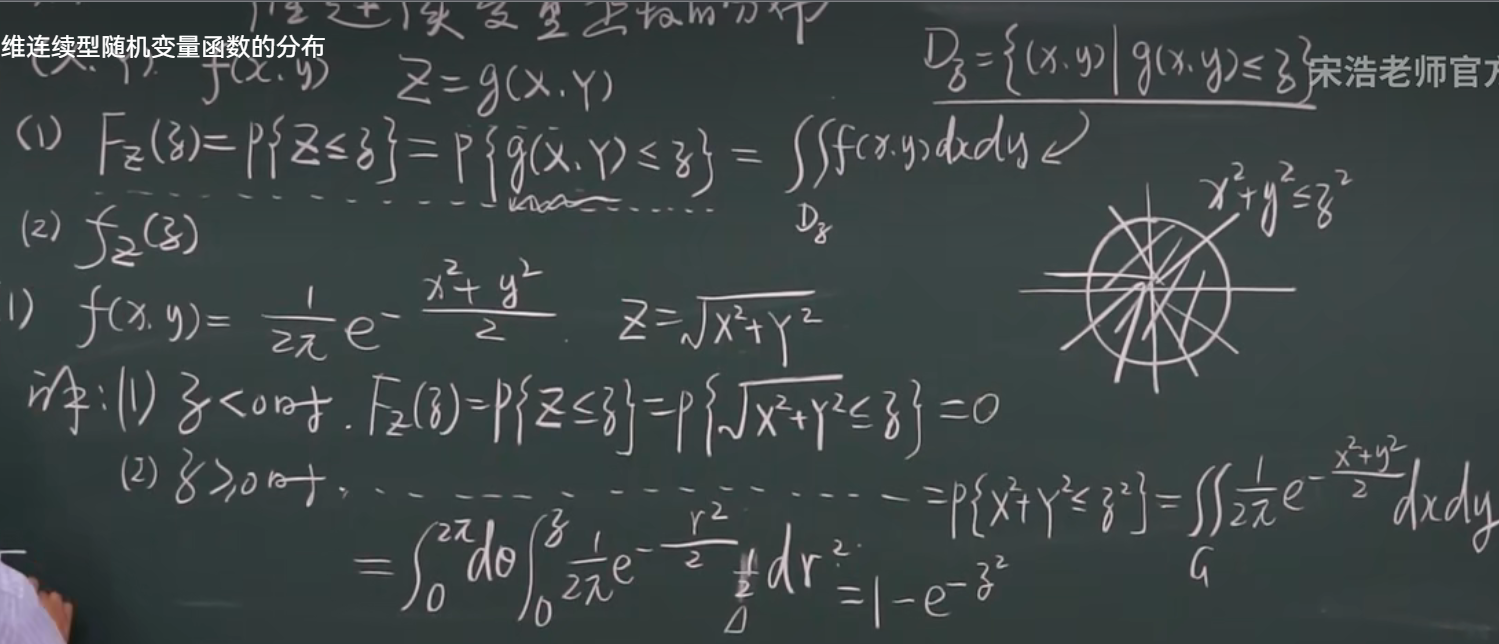 维连续型随机变量函数的分布
(X,Y) f(x,y) Z=g(X,Y) D_z={(x,y)|g(x,y)≤z}
宋浩老师官方
(1) F_Z(z)=P{Z≤z}=P{g(X,Y)≤z}=∬_{D_z} f(x,y)dxdy
x²+y²≤z²
(2) f_Z(z)
1) f(x,y)=\frac{1}{2π}e^{-\frac{x²+y²}{2}} Z=\sqrt{X²+Y²}
解:(1) z<0时. F_Z(z)=P{Z≤z}=P{\sqrt{X²+Y²}≤z}=0
(2) z≥0时, - - - - - - - =P{X²+Y²≤z²}=∬_G \frac{1}{2π}e^{-\frac{x²+y²}{2}}dxdy
=∫_0^{2π}dθ∫_0^z \frac{1}{2π}e^{-\frac{r²}{2}} \frac{1}{2} dr²=1-e^{-z²}